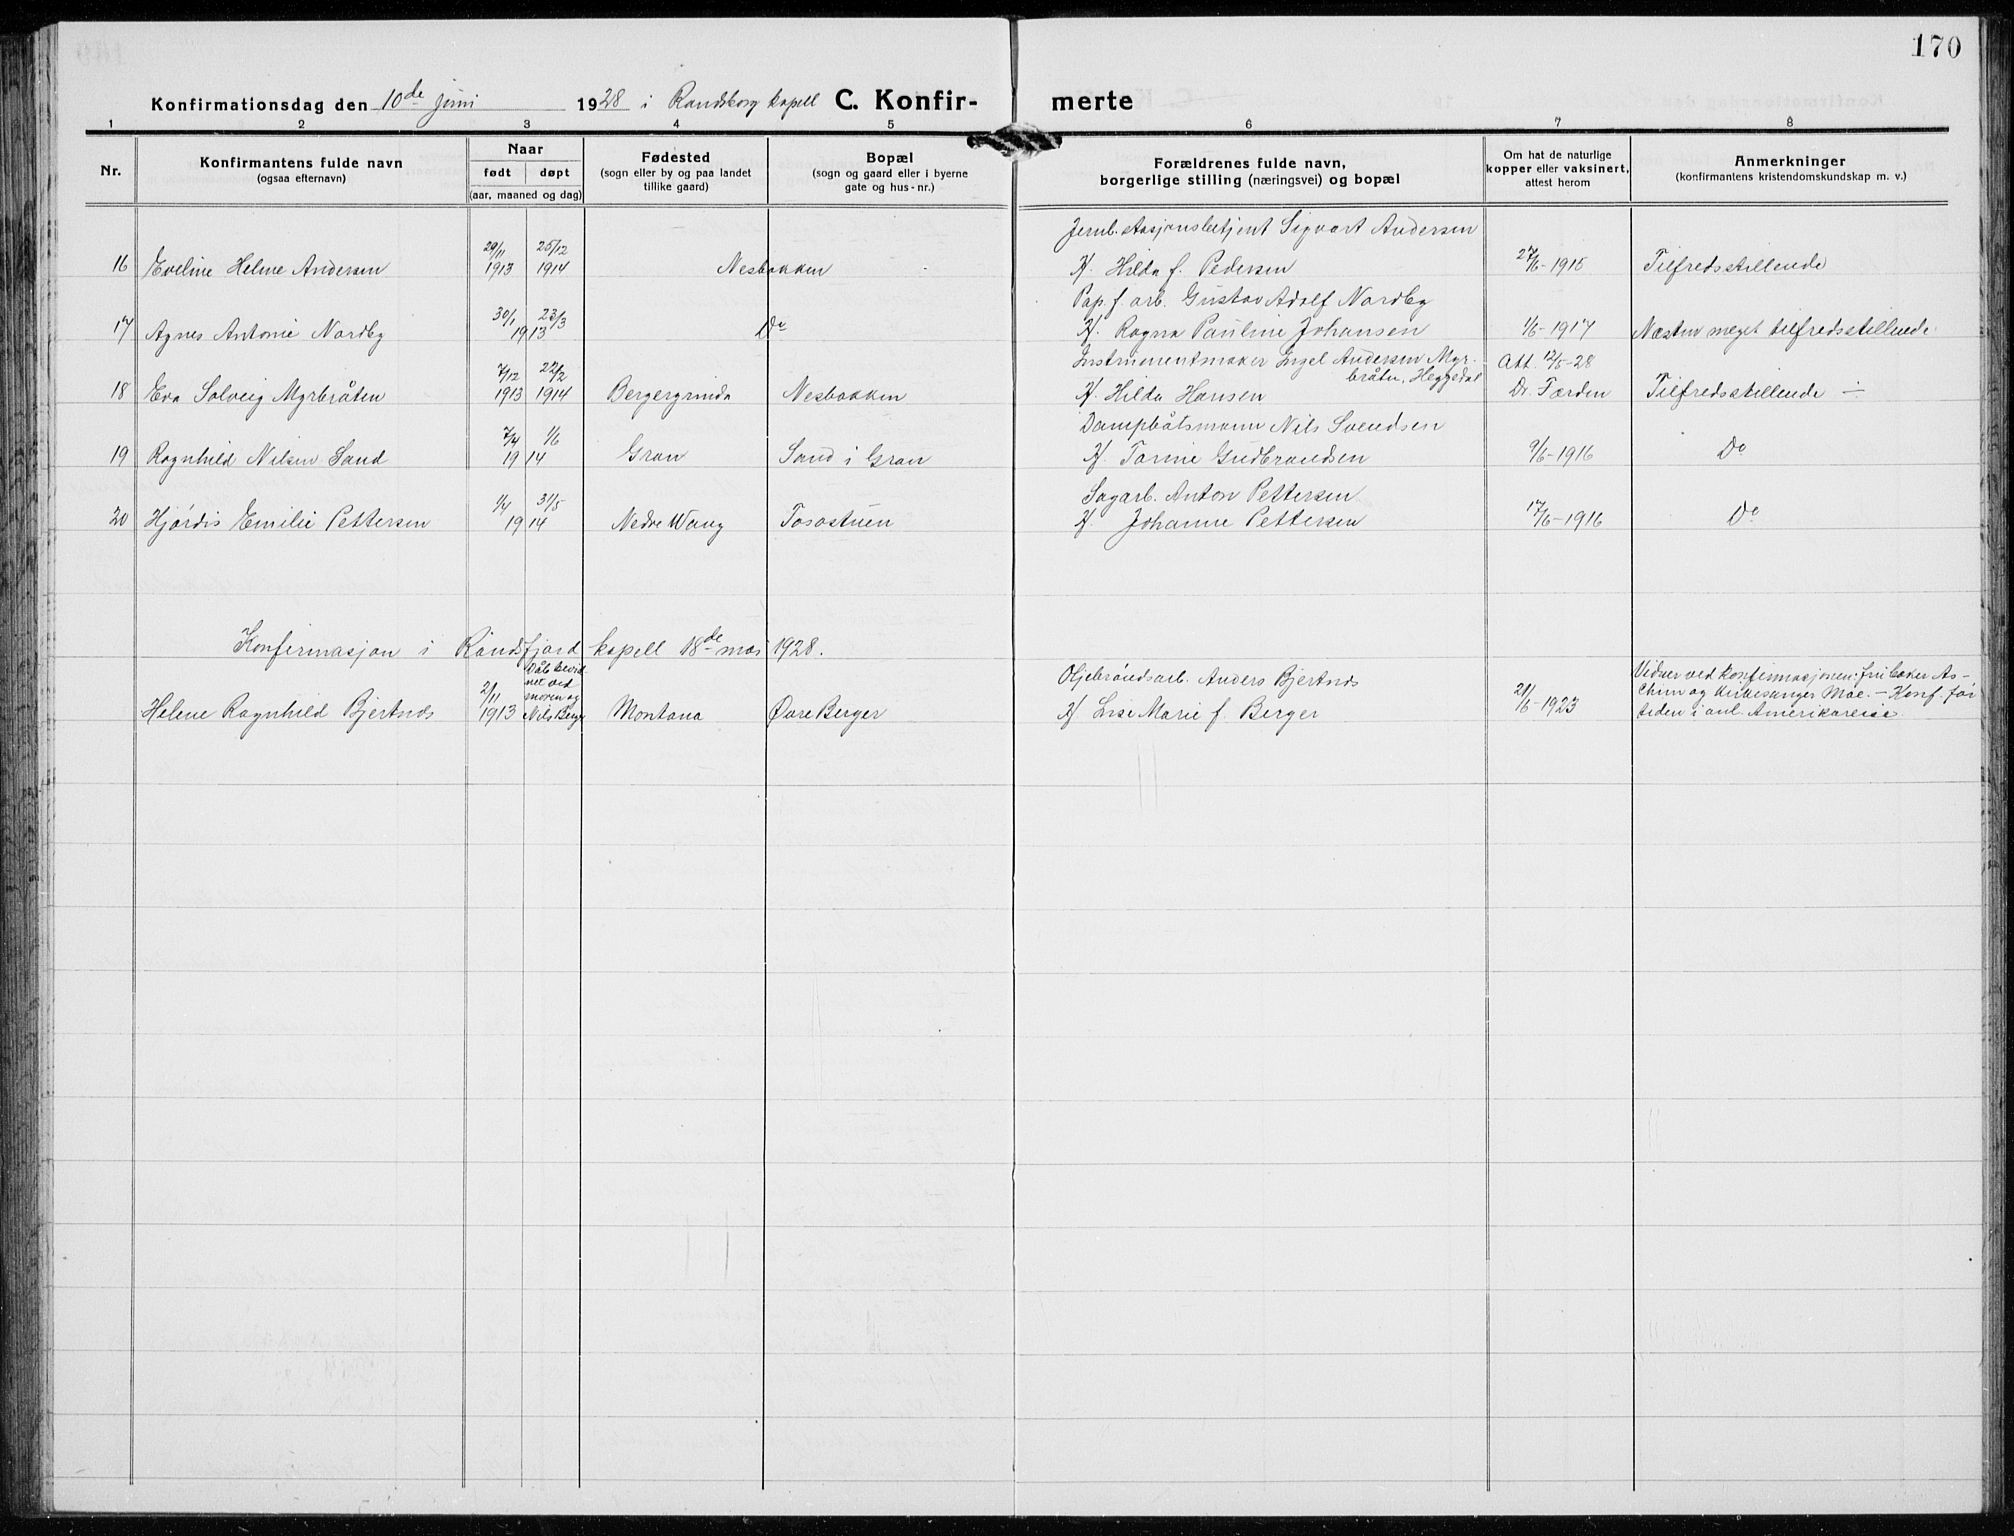 170
Konfirmationsdag den 10de juni 1928 i Randsborg kapell C. Konfir- merte
1 2 3 4 5 6 7 8
Nr.
Konfirmantens fulde navn
(ogsaa efternavn)
Naar
født døpt
(aar, maaned og dag)
Fødested
(sogn eller by og paa landet
tillike gaard)
Bopæl
(sogn og gaard eller i byerne
gate og hus-nr.)
Forældrenes fulde navn,
borgerlige stilling (næringsvei) og bopæl
Om hat de naturlige
kopper eller vaksinert,
attest herom
Anmerkninger
(konfirmantens kristendomskundskap m. v.)
Jernb. stasjonsbetjent Sigvart Andersen
29/11 25/12
16 Eveline Helme Andersen 1913 1914 Nesbakken H. Hilda f. Pedersen 27/6-1915 Tilfredsstillende
Pap. f. arb. Gustav Adolf Nordby
30/1 23/3
17 Agnes Antonie Nordby 1913 Do H. Ragna Pauline Johansen 1/6-1917 Næsten meget tilfredsstillende
Instrumentmaker Engel Andersen Myr-
bråten, Heggedal
Att. 12/5-28
7/12 22/2
18 Eva Solveig Myrbråten 1913 1914 Bergergrinda Nesbakken H. Hilda Hansen Dr. Færden Tilfredsstillende ÷
Dampbåtsmann Nils Svendsen
7/4 1/6
19 Ragnhild Nilsen Sand 1914 Gran Sand i Gran H. Torine Gudbrandsen 9/6-1916 Do
Sagarb. Anton Pettersen
1/4 31/5
20 Hjørdis Emilie Pettersen 1914 Nedre Wang Tosostuen H. Johanne Pettersen 17/6-1916 Do
Konfirmasjon i Randsfjord kapell 18de mai 1928.
Dåb bevid-
net ved
moren og
Nils Berger
Oljebrøndsarb. Anders Bjertnæs
2/11
Helene Ragnhild Bjertnæs 1913 Montana Øvre Berger H. Lise Marie f. Berger 21/6-1923
Vidner ved konfirmasjonen: fru baker As-
chim og kirkesanger Moe. - Konf. før
tiden i anl. Amerikareise.